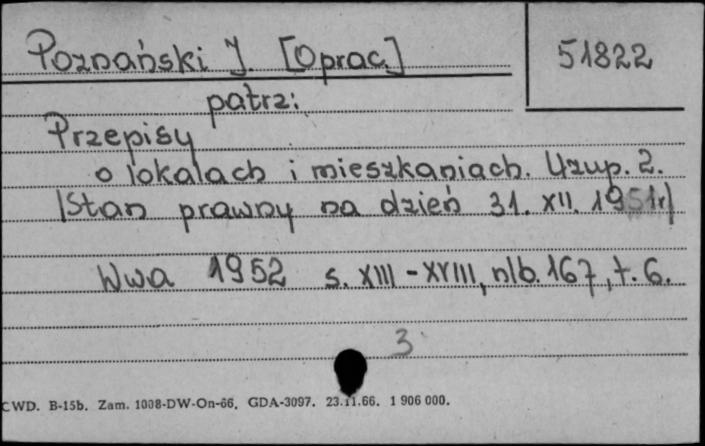 Poznański J. [Oprac.]
51822
patrz:
Przepisy
o lokalach i mieszkaniach. Uzup. 2.
/Stan prawny na dzień 31. XII. 1951r/
Wwa 1952 s. XIII - XVIII, nlb. 167, t. 6.
3
CWD. B-15b. Zam. 1008-DW-On-66. GDA-3097. 23.11.66. 1 906 000.